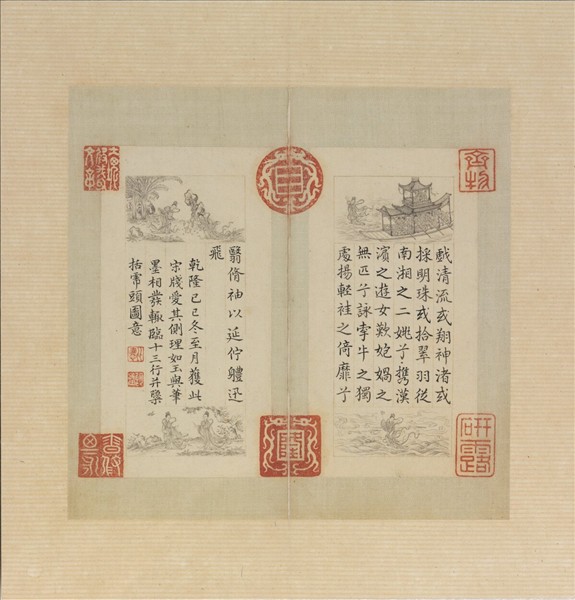 齊物
戲清流或翔神渚或
採明珠或拾翠羽從
南湘之二姚兮攜漢
濱之遊女歎媧之
無匹兮詠牽牛之獨
處揚輕袿之倚靡兮
研露
隆
翳脩袖以延佇軆迅
飛
乾隆己巳冬至月獲此
宋牋愛其側理如玉與筆
墨相發輒臨十三行并檃
括頭圖意